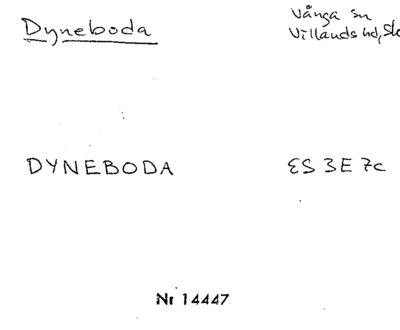 Dyneboda
Vånga sn
Villands hd, Sk
DYNEBODA
ES 3E 7c
Nr 14447